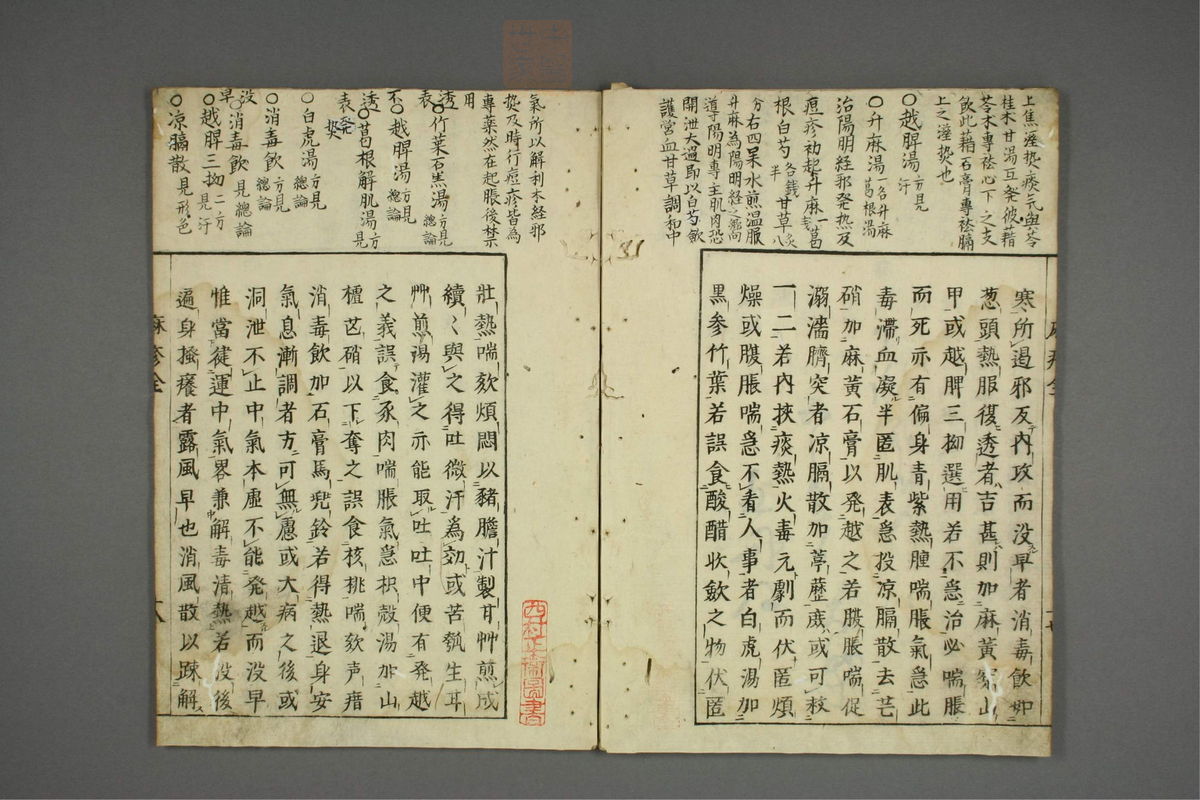 上焦溼熱痰氣無苓
桂木甘湯互発彼藉
苓木專祛心下之支
飲此藉石膏專祛膈
上之溼熱也
○越脾湯 方見汗
○升麻湯 一名升麻葛根湯
治陽明經邪発热及
痘疹初起升麻 葛
根白芍 各錢半 甘草 炙八分
右四 水煎温服
升麻為陽明經之 向
導陽明專主肌肉恐
開泄大過即以白芍歛
護営血甘草調和中
寒所遏邪反內攻而没早者消毒飲加
葱頭熱服復透者吉甚則加麻黄穿山
甲或越脾三拗選用若不急治必喘脹
而死亦有偏身青紫熱腫喘脹氣急此
毒滯血凝半匿肌表急投凉膈散去芒
硝加麻黄石膏以発越之若腹脹喘促
溺濇臍突者凉膈散加葶藶或可救
一二若內挾痰熱火毒元劇而伏匿煩
燥或腹脹喘急不看人事者白虎湯加
黒参竹葉若誤食酸醋收歛之物伏匿
氣所以解利木経邪
热及時行痘疹皆為
專藥然在起脹後禁
用
○竹葉石羔湯 方見總論
透表
○越脾湯 方見總論
不透表
○葛根解肌湯 方見
発热
○白虎湯 方見總論
○消毒飲 方見總論
没早
○消毒飲 見總論
○越脾三拗 二方見汗
○凉膈散 見形色
壯熱喘欬煩悶以豬膽汁製甘艸煎成
續々與之得吐微汗為効或苦瓠生耳
艸煎湯灌之亦能取吐吐中便有発越
之義誤食豕肉喘脹氣急枳殼湯加山
樝芒硝以下奪之誤食核桃喘欬声瘖
消毒飲加石膏馬兜鈴若得熱退身安
氣息漸調者方可無慮或大病之後或
洞泄不止中氣本虛不能発越而没早
惟當健運中氣畧兼解毒清熱若没後
遍身搔癢者露風早也消風散以踈解
麻疹全
十八